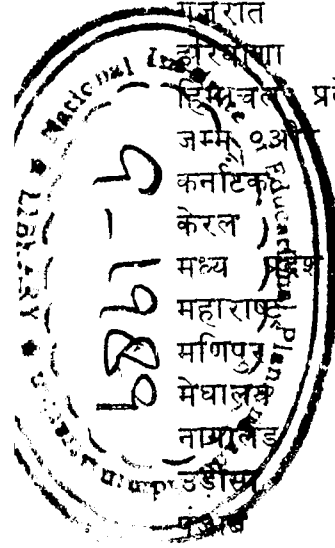 गुजरात
हरियाणा
हिमाचल प्रदे
जम्मू और
कर्नाटक
केरल
मध्य प्रदेश
महाराष्ट्र
मणिपुर
मेघालय
नागालैंड
उड़ीसा
पंजाब
National Institute of Educational Planning
LIBRARY